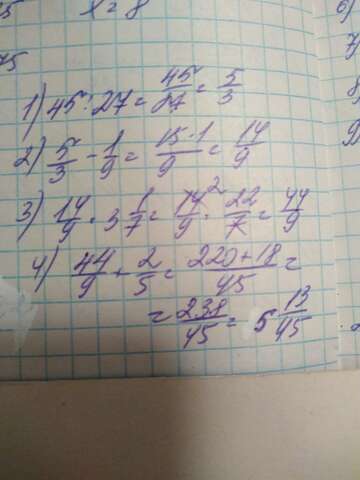 x = 8
75
1) 45 : 27 = 45/27 = 5/3
2) 5/3 - 1/9 = 15-1/9 = 14/9
3) 14/9 · 3 1/7 = 14 2/9 · 22/7 = 44/9
4) 44/9 + 2/5 = 220+18/45 =
= 238/45 = 5 13/45